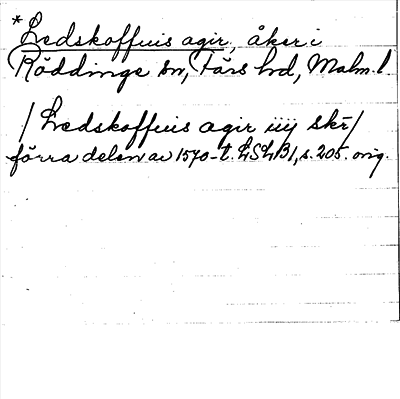 *Ledskoffuis agir, åker i
Röddinge sn, Färs hd, Malm. l.
/ Ledskoffuis agir iiij skr̄ /
förra delen av 1570-t. LSLB1, s. 205. orig.